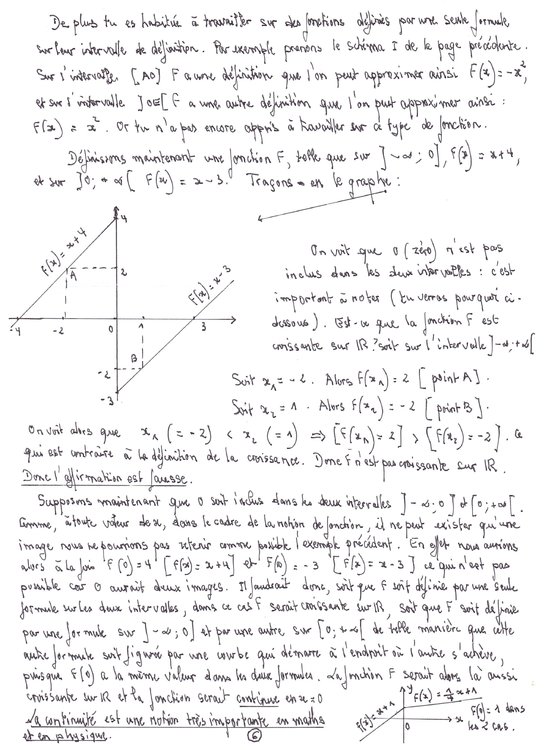 De plus tu es habituée à travailler sur des fonctions définies par une seule formule
sur leur intervalle de définition. Par exemple prenons le schéma I de la page précédente.
Sur l'intervalle [AO] F a une définition que l'on peut approximer ainsi F(x) = -x²,
et sur l'intervalle ]O [ F a une autre définition que l'on peut approximer ainsi :
F(x) = x². Or tu n'a pas encore appris à travailler sur ce type de fonction.
Définissons maintenant une fonction F, telle que sur ]-∞ ; 0], F(x) = x+4,
et sur ]0 ; +∞[ F(x) = x-3. Traçons-en le graphe :
4
F(x) = x+4
A
2
F(x) = x-3
-4
-2
0
1
3
B
-2
-3
On voit que 0 (zéro) n'est pas
inclus dans les deux intervalles : c'est
important à noter (tu verras pourquoi ci-
dessous). Est-ce que la fonction F est
croissante sur IR ? soit sur l'intervalle ]-∞, +∞[
Soit x₁ = -2. Alors F(x₁) = 2 [point A].
Soit x₂ = 1. Alors F(x₂) = -2 [point B].
On voit alors que x₁ (= -2) < x₂ (= 1) ⇒ [F(x₁) = 2] > [F(x₂) = -2]. Ce
qui est contraire à la définition de la croissance. Donc F n'est pas croissante sur IR.
Donc l'affirmation est fausse.
Supposons maintenant que 0 soit inclus dans les deux intervalles ]-∞ ; 0] et [0 ; +∞[.
Comme, à toute valeur de x, dans le cadre de la notion de fonction, il ne peut exister qu'une
image nous ne pourrions pas retenir comme possible l'exemple précédent. En effet nous aurions
alors à la fois F(0) = 4 [F(x) = x+4] et F(0) = -3 [F(x) = x-3] ce qui n'est pas
possible car 0 aurait deux images. Il faudrait donc, soit que F soit définie par une seule
formule sur les deux intervalles, dans ce cas F serait croissante sur IR, soit que F soit définie
par une formule sur ]-∞ ; 0] et par une autre sur [0 ; +∞[ de telle manière que cette
autre formule soit figurée par une courbe qui démarre à l'endroit où l'autre s'achève,
puisque F(0) a la même valeur dans les deux formules. La fonction F serait alors là aussi
croissante sur IR et la fonction serait continue en x=0
La continuité est une notion très importante en maths
et en physique.
6
y
F(x) = x+1
x+1
x
0
F(0) = 1 dans
les 2 cas.